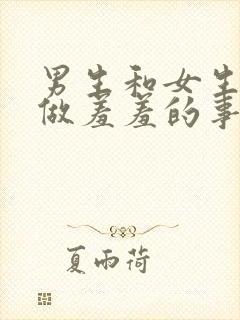 男生和女生
做羞羞的事
夏雨荷